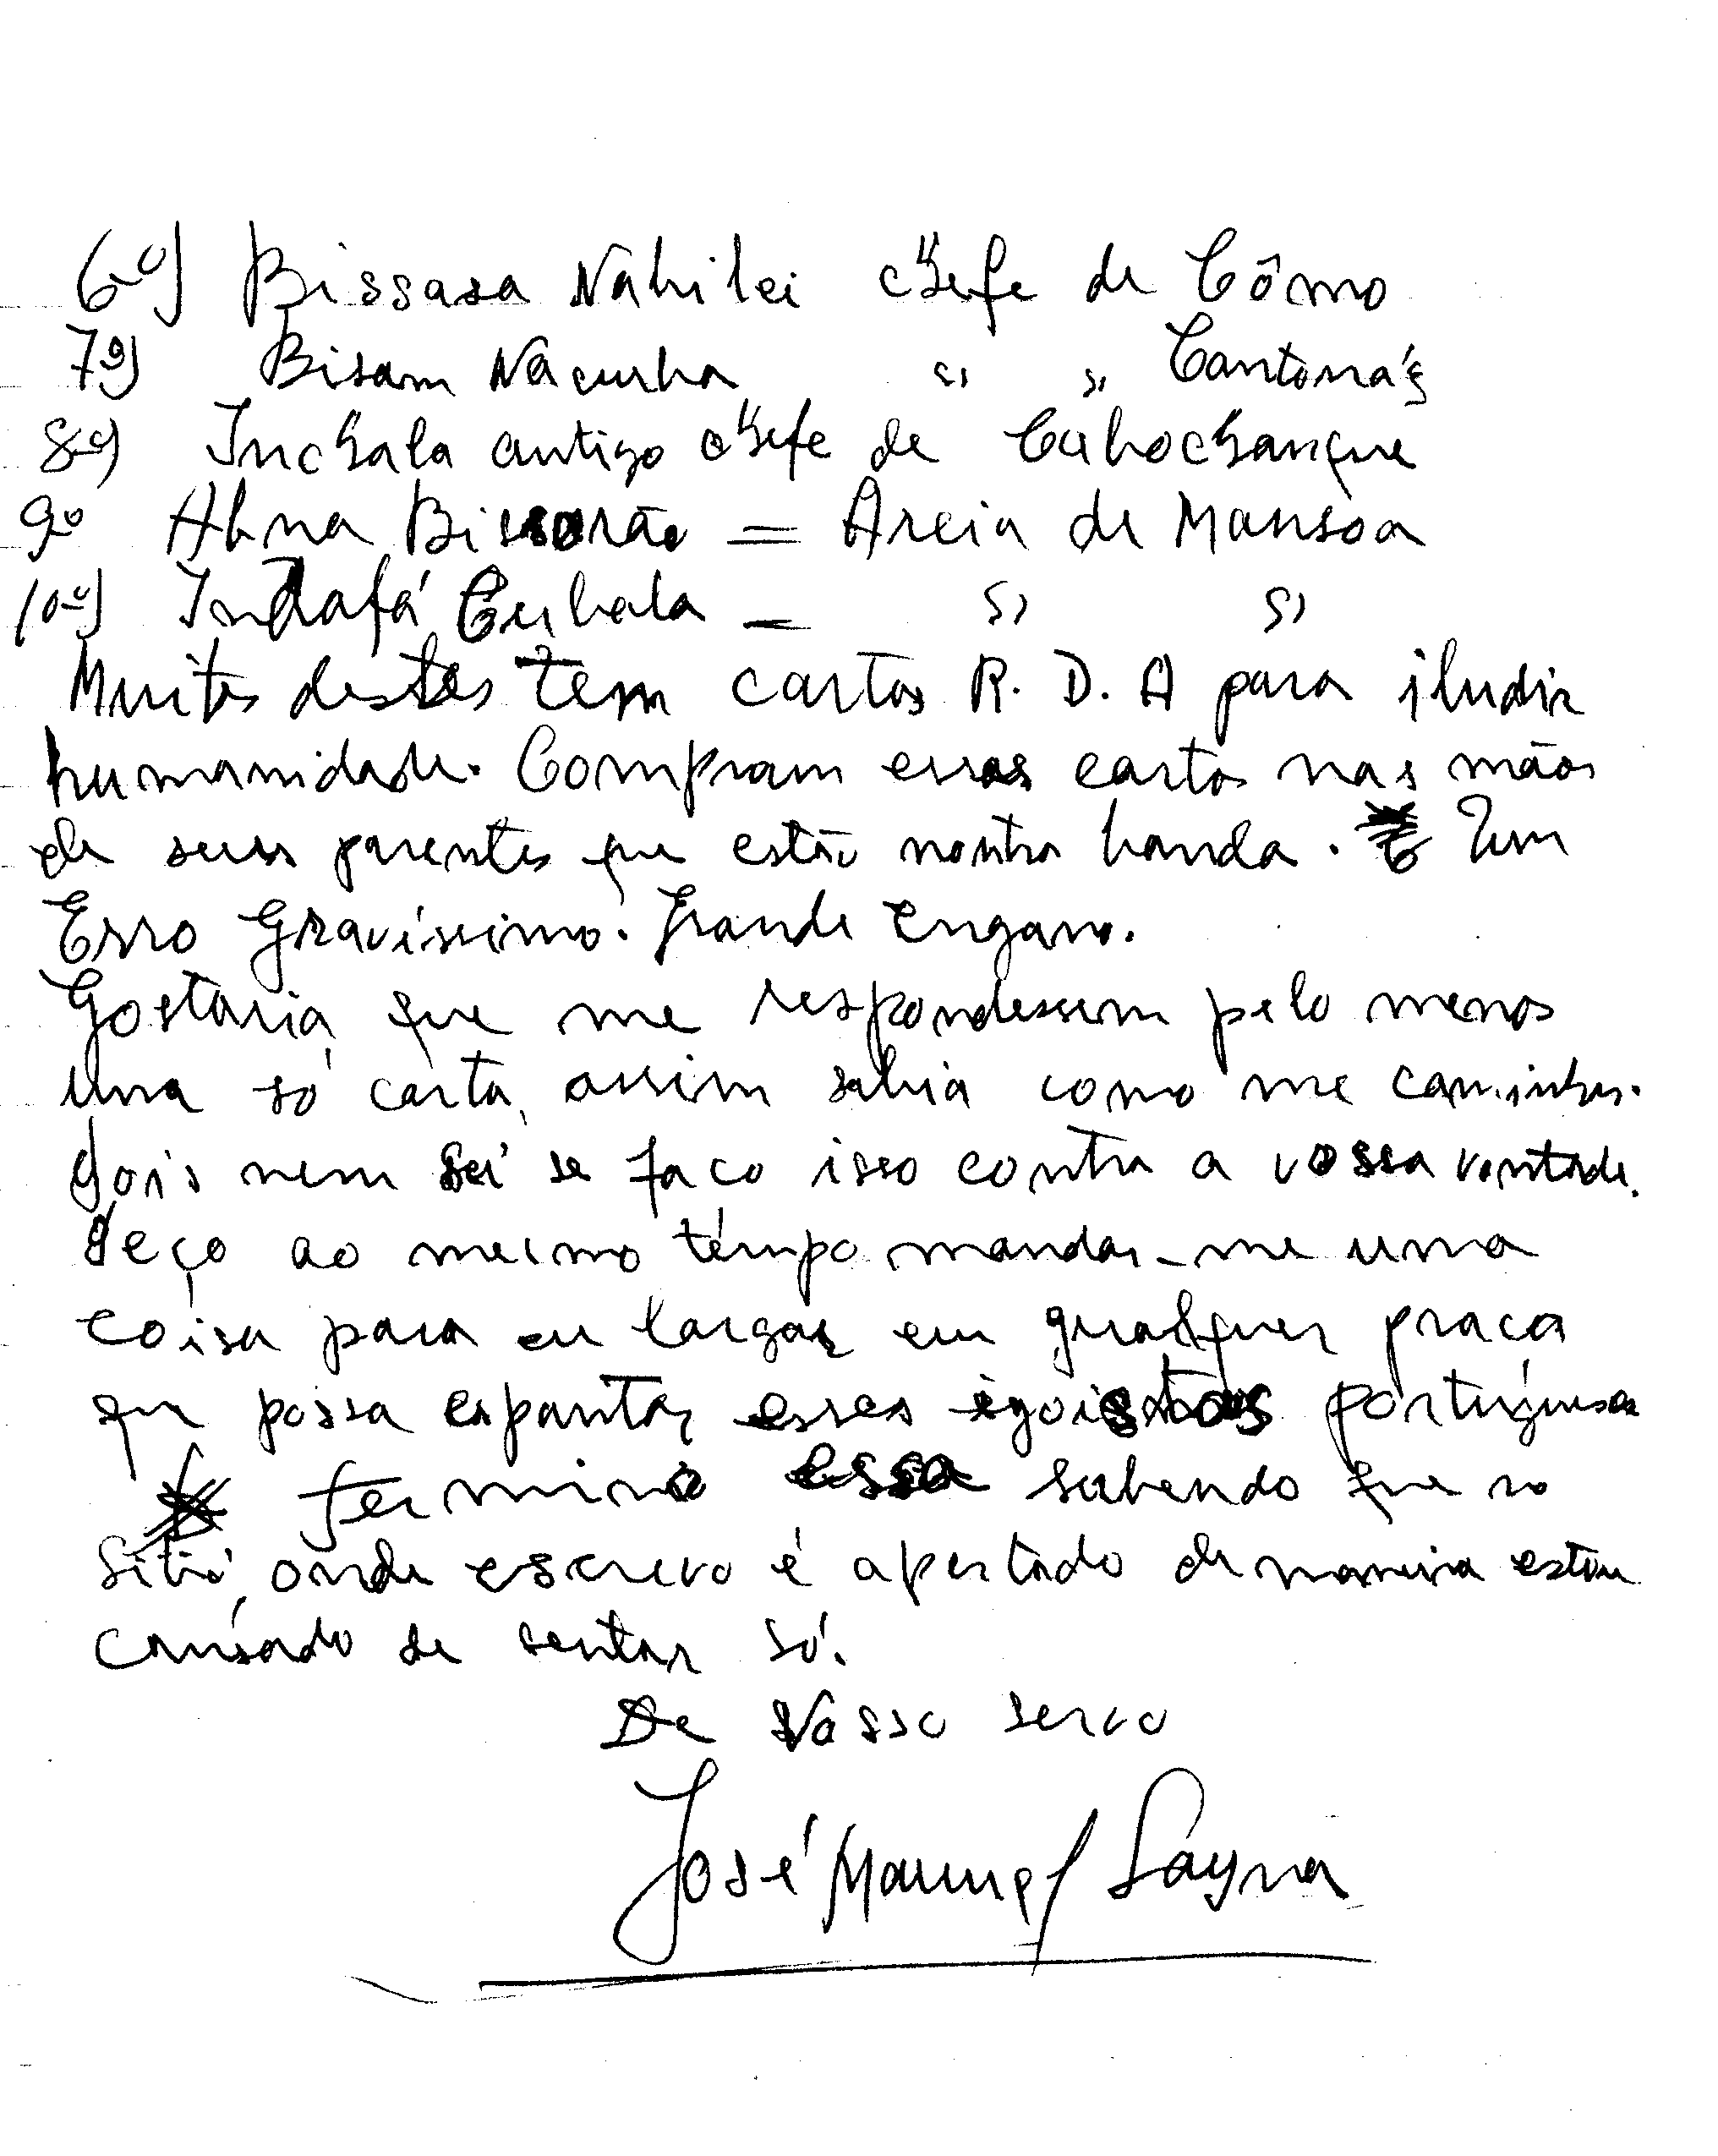 6º) Bissasa Nabilei chefe de Cômo
7º) Bisam Nacunha " " Cantonáz
8º) Inchala antigo chefe de Cabochanque
9º Abna Bissorão = Areia de Mansoa
10º) Indafá Cubala - " "
Muitos destes tem cartas R. D. A para iludir
humanidade. Compram essas cartas nas mãos
de seus parentes que estão noutra banda. Um
Erro Gravíssimo. Grande engano.
Gostaria que me respondessem pelo menos
uma só carta, assim sabia como me caminhar.
Pois nem sei se faco isso contra a vossa vontade.
Peço ao mesmo témpo mandar-me uma
coisa para eu largar em qualquer praca
que possa espantar esses égoistas portuguesas
termino essa sabendo que no
Sitio, onde escrevo é apertado de maneira estou
cansado de sentar só.
De Vosso servo
José Manuel Sayna